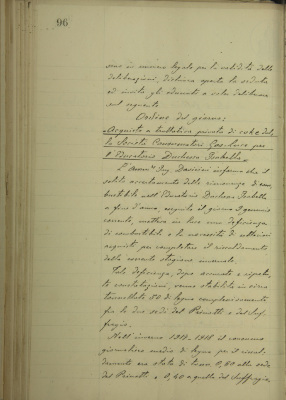 96
sono in numero legale per la validità delle
deliberazioni, dichiara aperta la seduta
ed invita gli adunati a voler deliberare
sul seguente
Ordine del giorno:
Acquisto a trattativa privata di coke dal
la Società Consumatori Gas-luce per
l'Educatorio Duchessa Isabella
L'Ing. informa che il
solito accertamento delle rimanenze di com
bustibili nell'Educatorio Duchessa Isabella
a fine d'anno, eseguito il giorno 2 gennaio
corrente, metteva in luce una deficienza
di combustibile e la necessità di ulteriori
acquisti per completare il riscaldamento
della corrente stagione invernale.
Tale deficienza, dopo accurate e ripetu
te constatazioni, venne stabilita in circa
tonnellate 50 di legna complessivamente
fra le due sedi del e del Suf
fragio.
Nell'inverno 1917-1918 il consumo
giornaliero medio di legna per il riscal
damento era stato di tonn. 0,80 alla sede
del e 0,40 a quella del Suffragio,